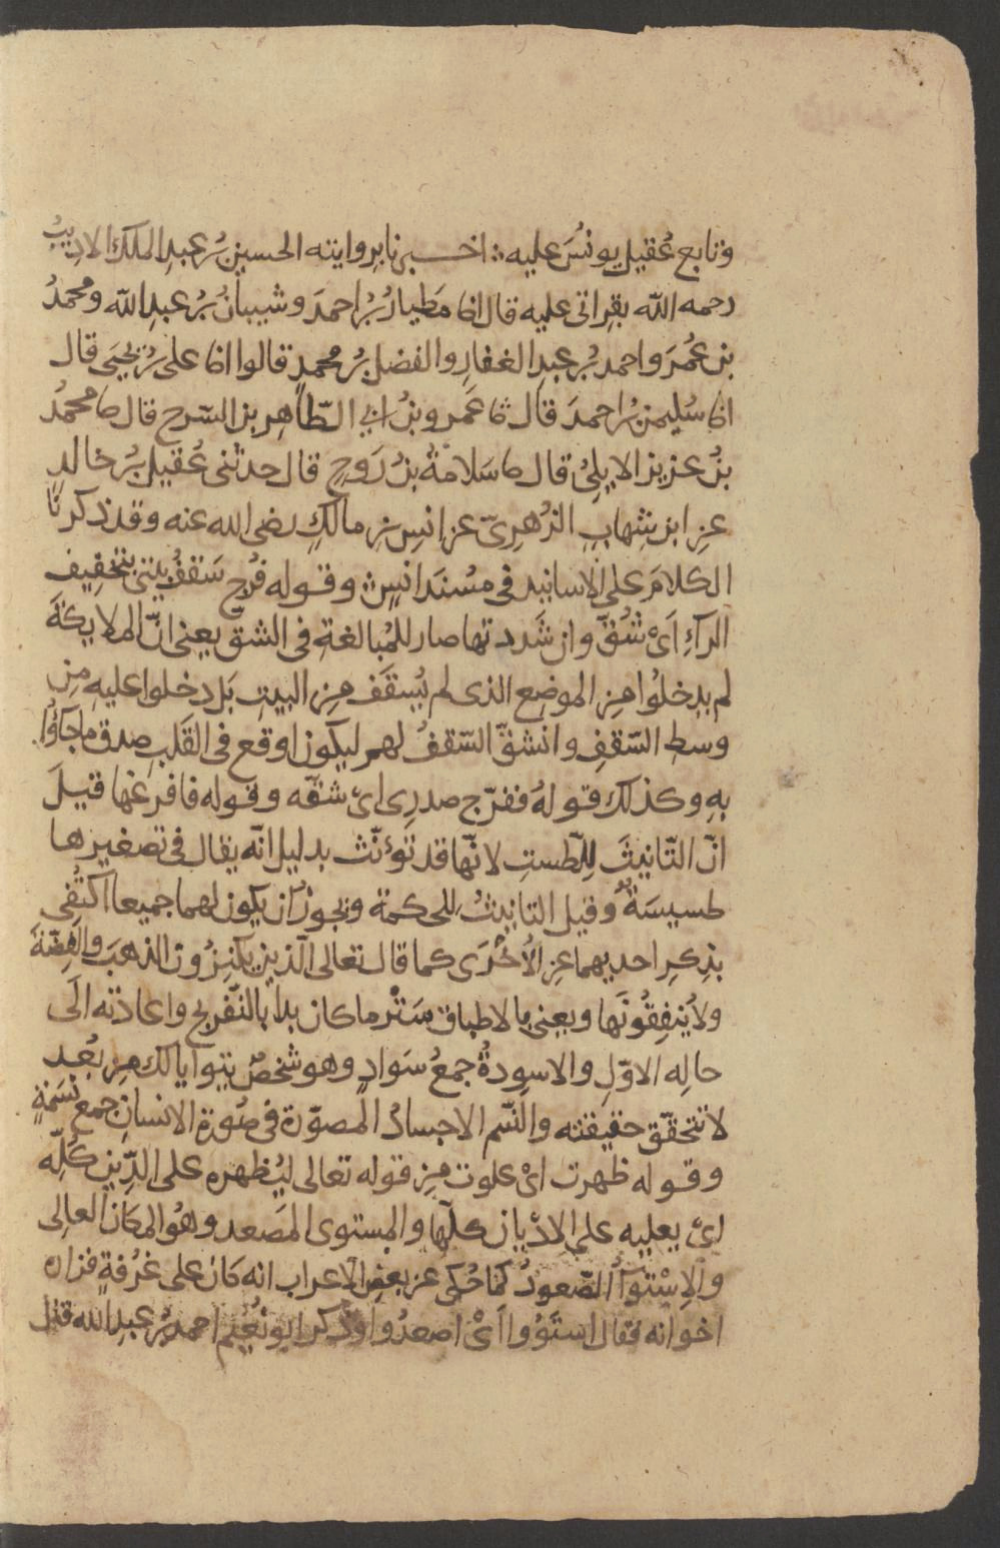 وتابع عُقيل يونسُ عليه ؞ اخــبرنا بروايته الحسين بنُ عبدِ الملك الاديبُ
رحمه الله بقراتى عليه قال انا مَطيارُ بنُ احمدَ وشيبانُ بنُ عبدِ الله ومحمدُ
بن عُمرَ واحمد بنُ عبدِ الغفارِ والفضل بنُ محمدٍ قالوا انا على بنُ يحيَى قال
انا سُليمن بنُ احمدَ قال ثا عَمرو بنُ ابى الطّاهِر بن السّرح قال ثا محمدُ
بنُ عزيز الايلِىُّ قال ثا سَلامَةُ بنُ رَوحٍ قال حدثنى عُقيل بنُ خالدٍ
عنِ ابن شِهابٍ الزُهرِىّ عن انسِ بنِ مالكٍ رضى الله عنه وقد ذكرنا
الكلامَ على الاسانيد فى مُسنَد انسٍ وقوله فُرِج سَقفُ بيتى بتخفِيف
الرآءِ اَىْ شُقَّ وان شَددتها صار للمُبالغةِ فى الشق يعنى انّ الملايكةَ
لم يدخلُوا مِن الموضِع الذى لم يُسقَف مِن البيتِ بَل دخلوا عليهِ مِن
وسطِ السّقفِ وانشقَّ السّقفُ لهم ليكون اوقع فى القَلبِ صدق ما جآؤُا
بهِ وكذلك قولهُ ففرّج صدرِى اىْ شقّه وقوله فافرغها قيلَ
انّ التّانيثَ لِلطّستِ لانّها قد تؤنّث بدليل انّه يقال فى تصغيرها
طسيسَةٌ وقيل التانيثُ للحكمة ويجوزُ ان يكون لهما جميعا اكتُفِى
بذِكرِ احديهما عنِ الأُخْرَى كما قال تعالى الّذين يكنِزُون الذهبَ والفِضّةَ
ولا يُنفِقُونَها ويعنى بالاطباق سَتْر ما كان بدا بالتّفريج واعادته الَى
حالِه الاوّلِ والاسوِدةُ جمعُ سَوادٍ وهو شخصٌ يتوايا لك مِن بُعدٍ
لا تتحقّق حقيقته والنَّسَم الاجسادُ المصوّرة فى صُورة الانسانِ جمع نسَمَةٍ
وقوله ظهرت اىْ علوت مِن قوله تعالى ليُظهره على الدّينِ كُلّه
اىْ يعليه على الادْيان كلّها والمستوى المَصعد وهُو المكان العالِى
والاِسْتوآءُ الصّعودُ كما حُكى عن بعضِ الاعراب انه كان على غُرفةٍ فزاره
اخوانه فقال استَوُوا اَىْ اصعدُوا وذكر ابو نُعيْم احمد بنُ عبدِ الله قال